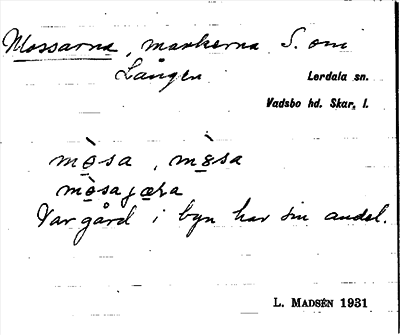 Mossarna, markerna S. om
Lången
Lerdala sn.
Vadsbo hd. Skar. l.
mò̲sa, mò̲sa
mò̲sajæ̲ʀa
Var gård i byn har sin andel.
L. MADSÉN 1931